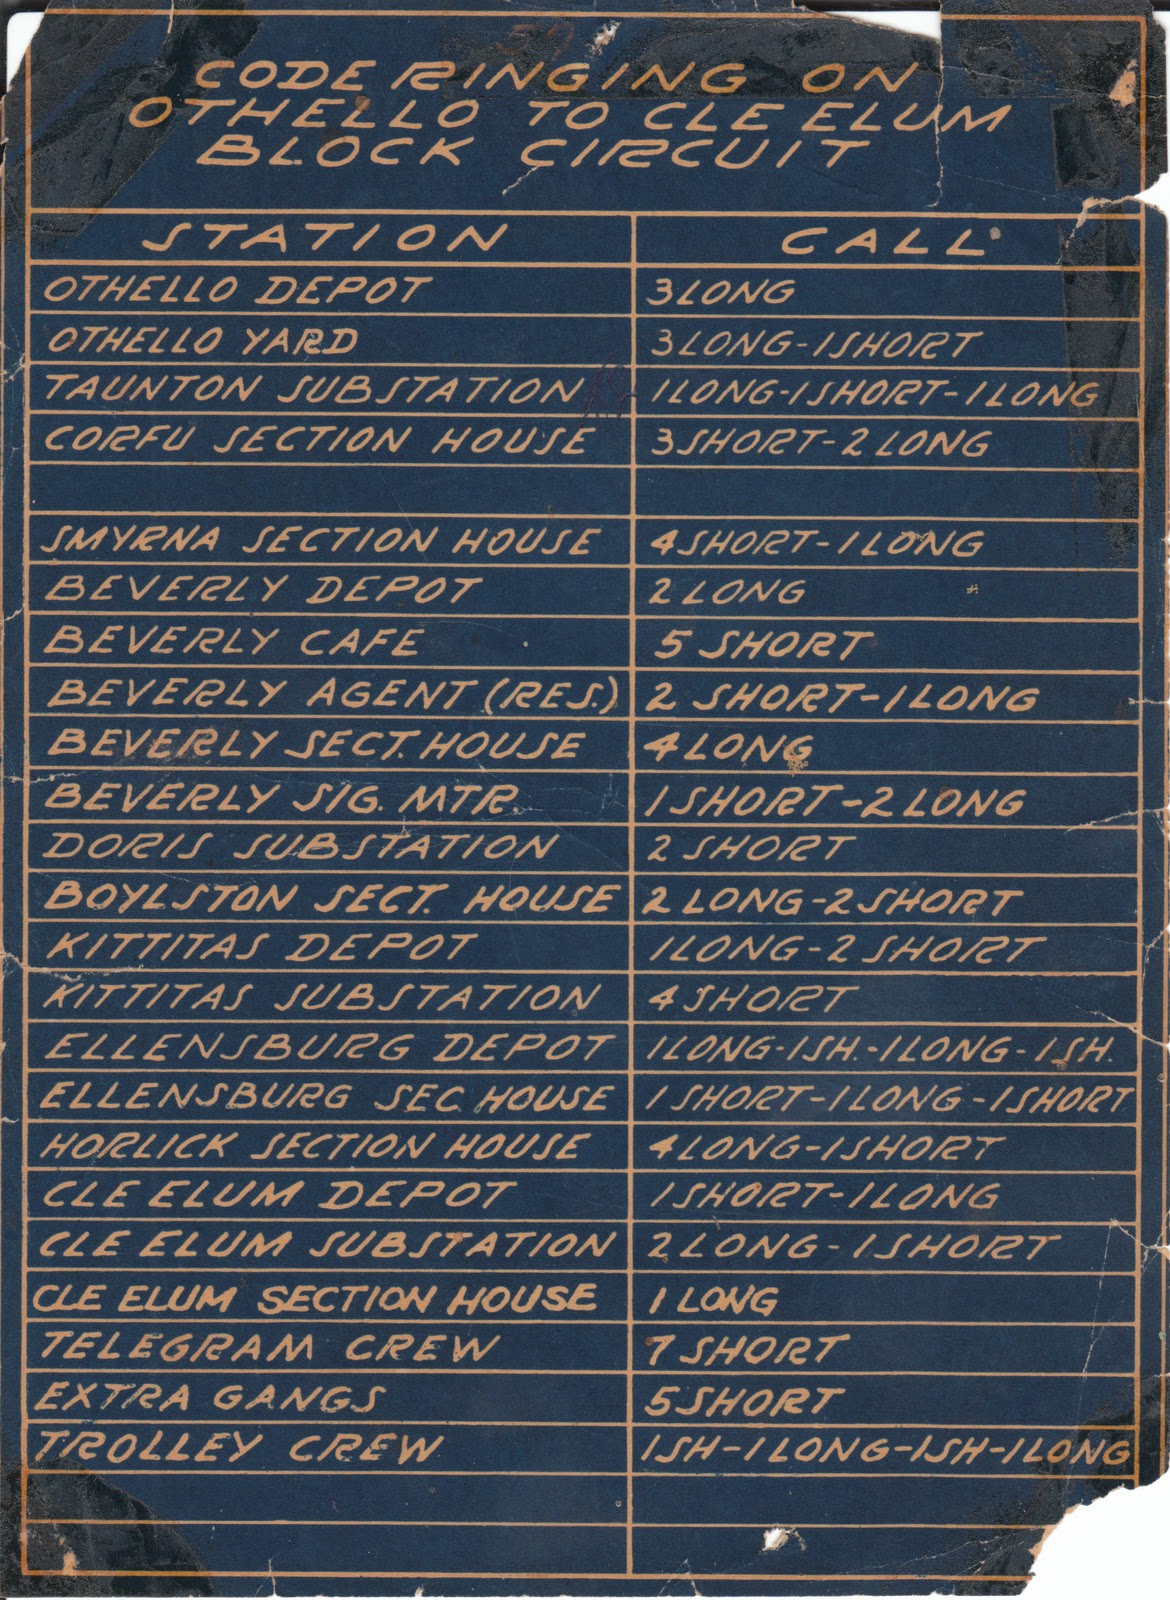 CODE RINGING ON
OTHELLO TO CLE ELUM
BLOCK CIRCUIT
STATION CALL
OTHELLO DEPOT 3 LONG
OTHELLO YARD 3 LONG-1 SHORT
TAUNTON SUBSTATION 1 LONG-1 SHORT-1 LONG
CORFU SECTION HOUSE 3 SHORT-2 LONG
SMYRNA SECTION HOUSE 4 SHORT-1 LONG
BEVERLY DEPOT 2 LONG
BEVERLY CAFE 5 SHORT
BEVERLY AGENT (RES.) 2 SHORT-1 LONG
BEVERLY SECT. HOUSE 4 LONG
BEVERLY SIG. MTR. 1 SHORT-2 LONG
DORIS SUBSTATION 2 SHORT
BOYLSTON SECT. HOUSE 2 LONG-2 SHORT
KITTITAS DEPOT 1 LONG-2 SHORT
KITTITAS SUBSTATION 4 SHORT
ELLENSBURG DEPOT 1 LONG-1 SH.-1 LONG-1 SH.
ELLENSBURG SEC. HOUSE 1 SHORT-1 LONG-1 SHORT
HORLICK SECTION HOUSE 4 LONG-1 SHORT
CLE ELUM DEPOT 1 SHORT-1 LONG
CLE ELUM SUBSTATION 2 LONG-1 SHORT
CLE ELUM SECTION HOUSE 1 LONG
TELEGRAM CREW 7 SHORT
EXTRA GANGS 5 SHORT
TROLLEY CREW 1 SH-1 LONG-1 SH-1 LONG